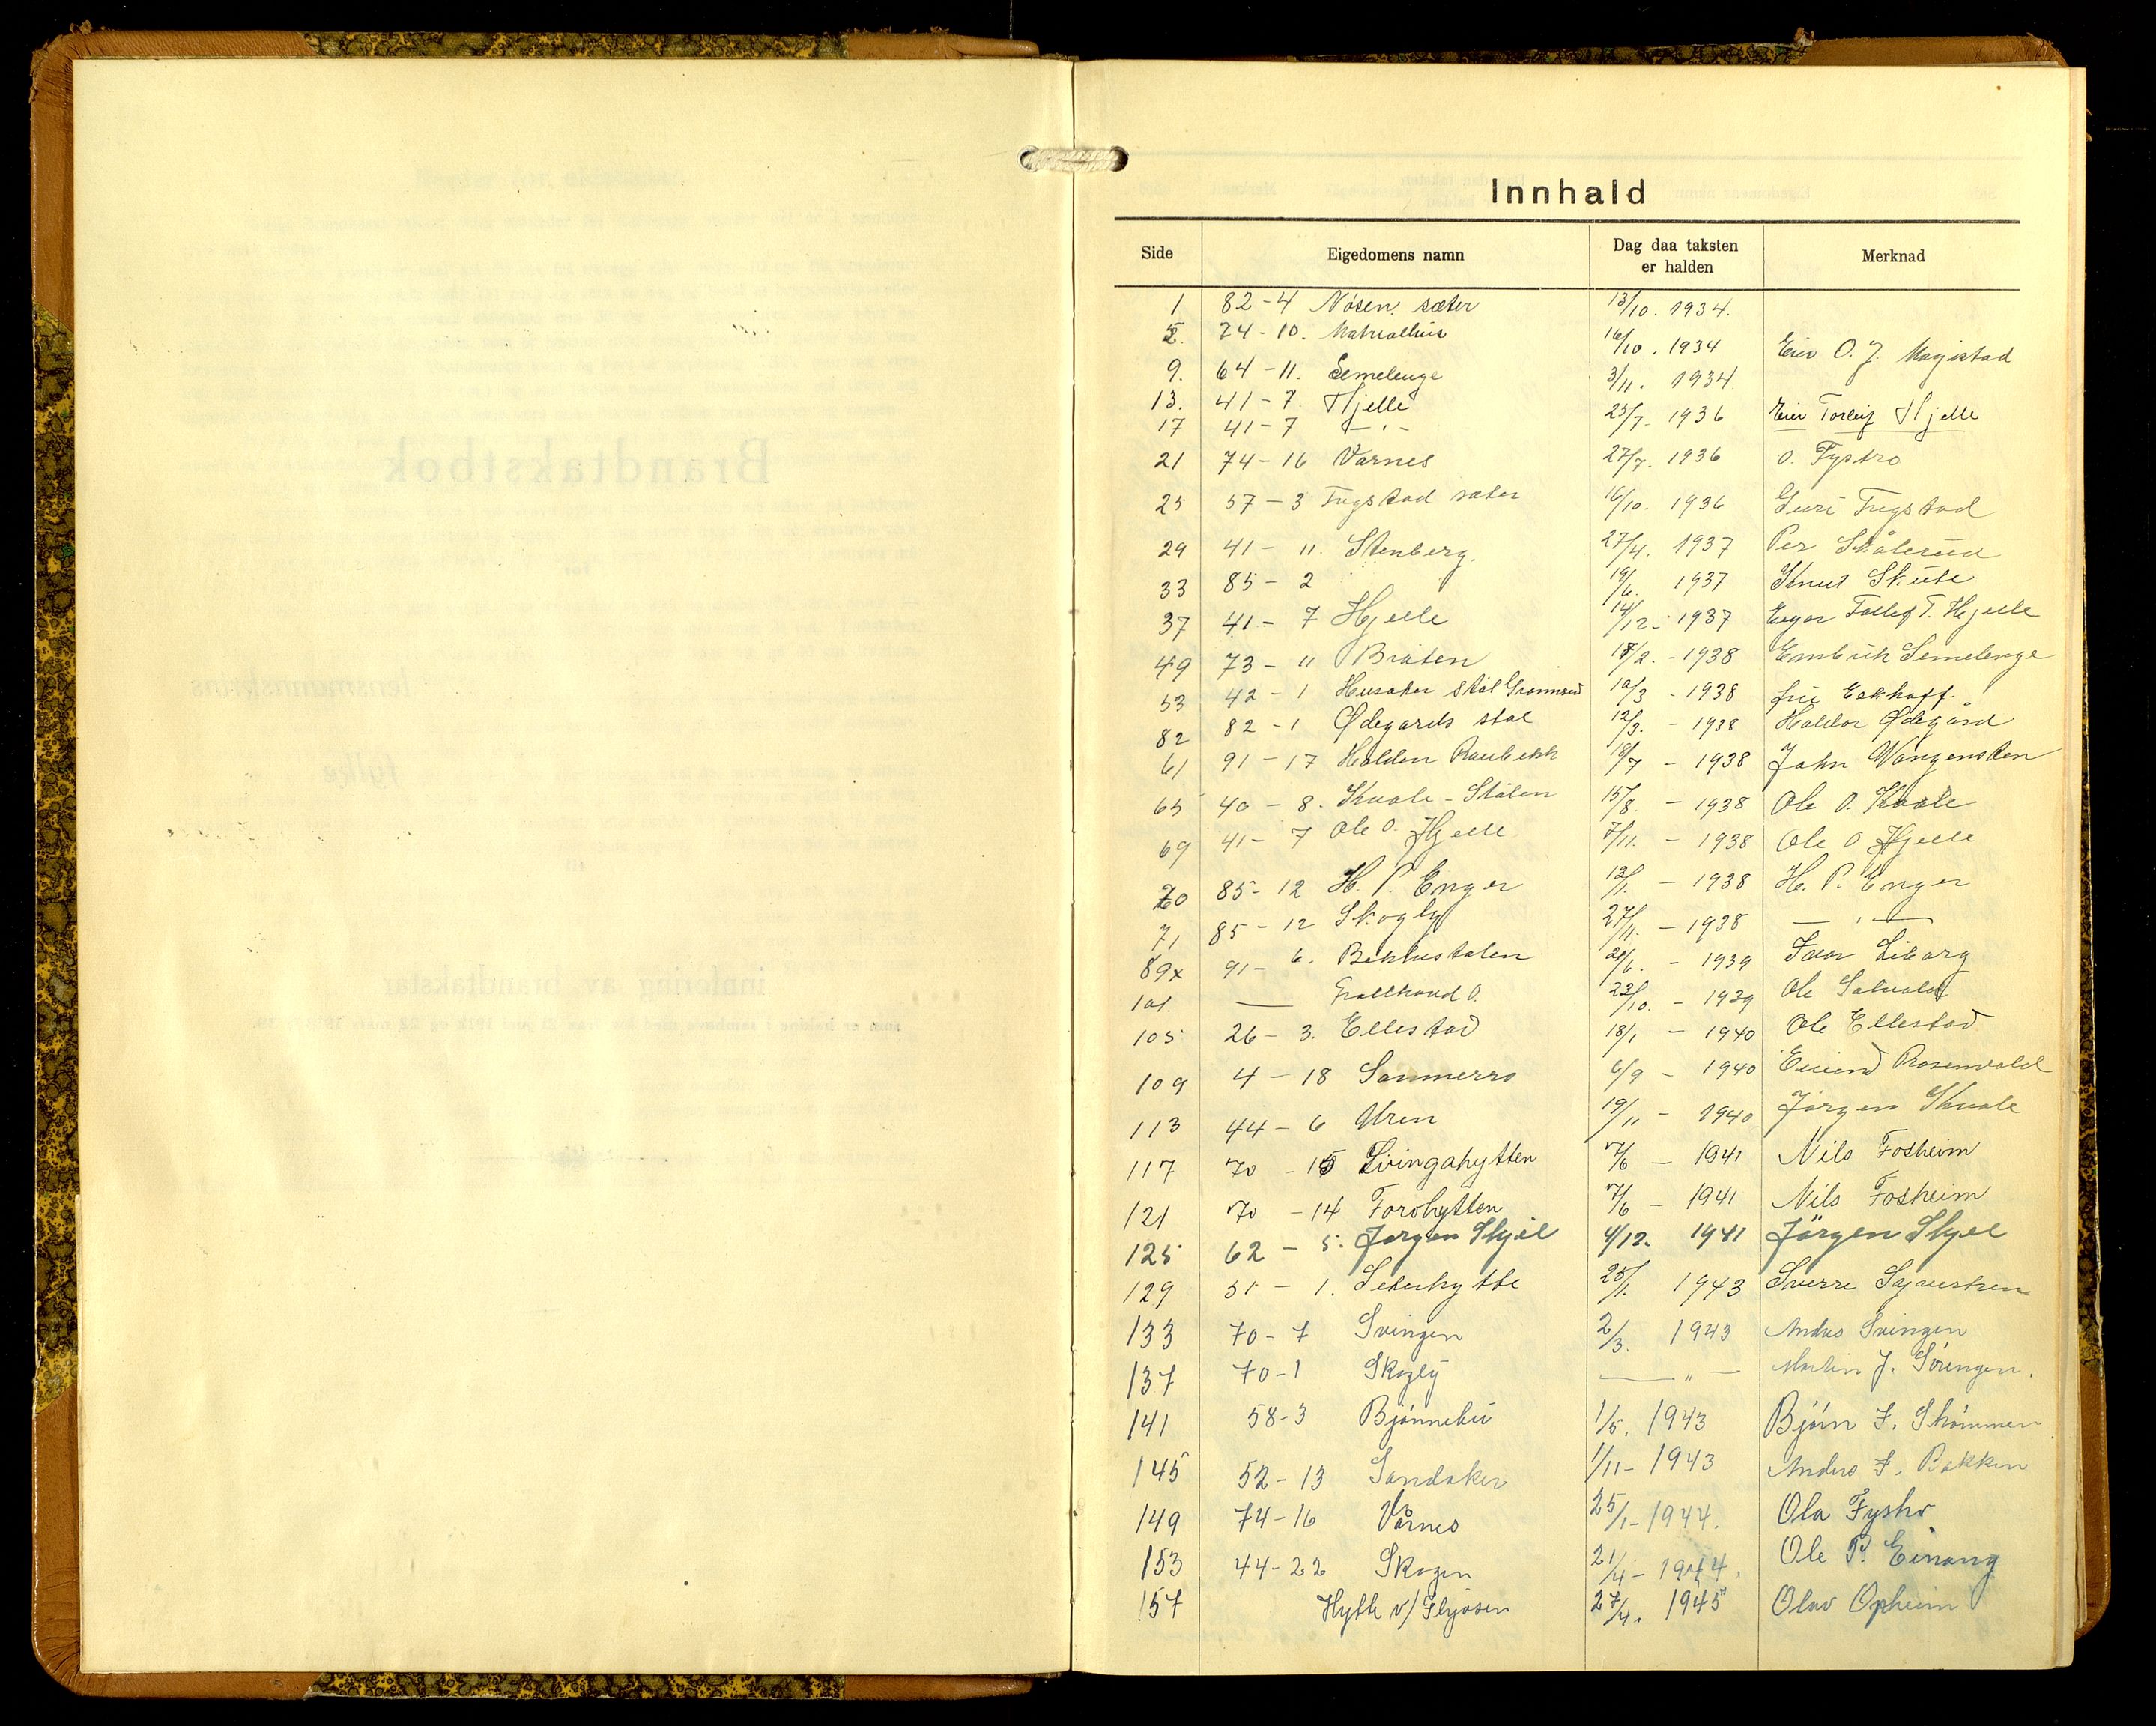 Innhald
Side Eigedomens namn Dag daa taksten er halden Merknad
1 82-4 Nösen sæter 13/10. 1934.
5. 74-10. 16/10. 1934 Eier O. J.
9. 64-11. Semelenge 3/11. 1934
13. 41-7. Hjelle 23/7. 1936 Eier Torleif Hjelle
17 41-7 -"-
21 74-16 Varnes 27/7. 1936 O. Fystro
25 57-3 sæter 16/10. 1936 Guri
29 41-11. Stenberg. 27/4. 1937 Per
33 85-2 19/6. 1937 Knut Skute
37 41-7 Hjelle 14/12. 1937 T. Hjelle
49 73-11 Bråten 18/2. - 1938 Embrik Semelenge
53 42-1 Husaker støl 10/3 - 1938 Eckhoff.
82 82-1 Ødegards støl 12/3. - 1938 Haldor Ødegård
61 91-17 Halden 18/7 - 1938 John Wangensten
65 40-8. Kvale-Stølen 15/8. - 1938 Ole O. Kvale
69 41-7 Ole O. Hjelle 7/11. - 1938 Ole O Hjelle
70 85-12 H. P. Enger 12/1. - 1938 H. P. Enger
71 85-12 Skogly 27/11. - 1938 — " —
89x 91-6. 1939
101. — 23/10. - 1939 Ole
105 26-3. Ellestad 18/1 - 1940 Ole Ellestad
109 4-18 Sommerro 6/9 - 1940 Rosenvold
113 44-6 Uren 19/11 - 1940 Jörgen Kvale
117 70-15 Svingahytten 7/6 - 1941 Nils Fosheim
121 70-14 Forohytten 7/6 - 1941 Nils Fosheim
125 62-5. Jørgen Skjel 4/12. 1941 Jörgen Skjel
129 51-1. Seterhytte 25/1. 1943 Sverre Syvertsen
133 70-7 Svingen 2/3. 1943 Andres Svingen
137 70-1 Skogly — " — Martin J. Svingen.
141 58-3 Bjønnebu 1/5. 1943 Björn J. Skömmen
145 52-13 Sandaker 1/11- 1943 Anders J. Bakken
149 74-16 Vårnes 25/1- 1944. Ola Fystro
153 44-22 Skogen 21/4- 1944. Ole P. Einang
157 Hytte v/ Flyvasen 27/4. 1945 Olav Opheim